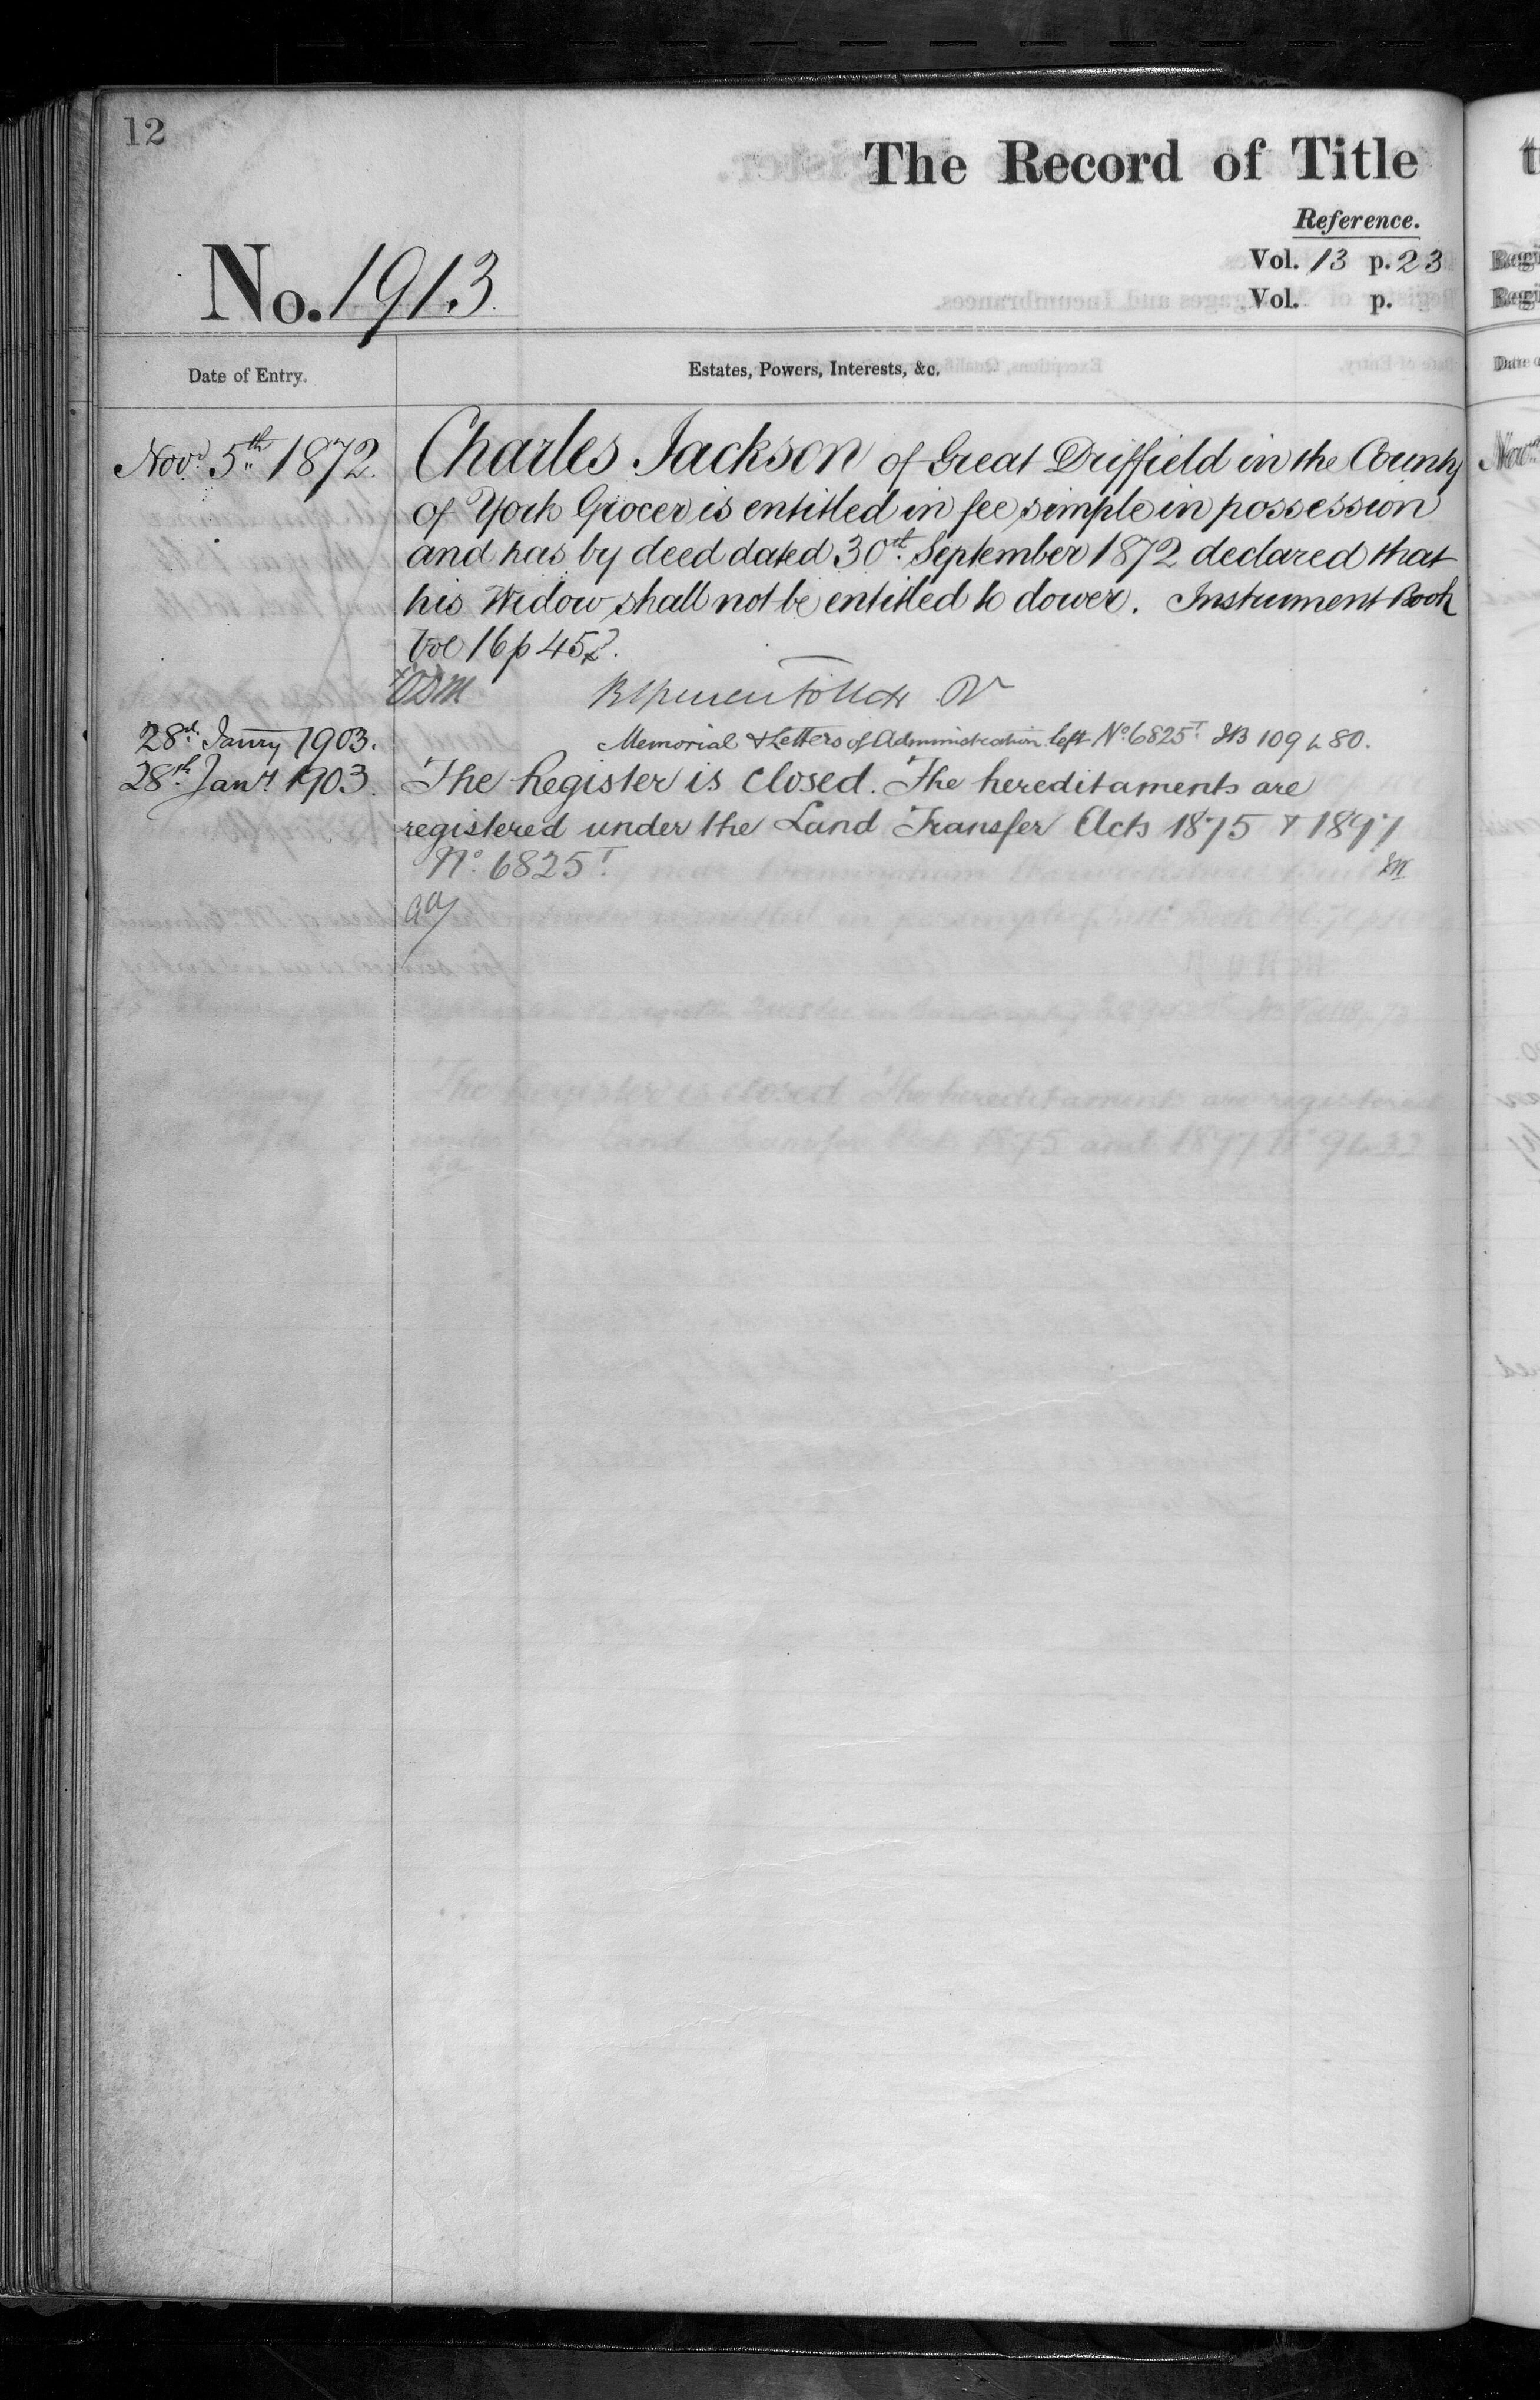 12
The Record of Title
Reference.
No. 1913
Vol. 13 p. 23
Vol. p.
Date of Entry. Estates, Powers, Interests, &c.
Novr. 5th 1872. Charles Jackson of Great Driffield in the County
of York Grocer is entitled in fee simple in possession
and has by deed dated 30th. September 1872 declared that
his Widow shall not be entitled to dower. Instrument Book
Vol 16 p 45
28th Janry 1903. Memorial & Letters of Administration left No. 6825T. 109 80.
28th. Jany 1903. The Register is closed. The hereditaments are
registered under the Land Transfer Acts 1875 & 1897
No. 6825T.